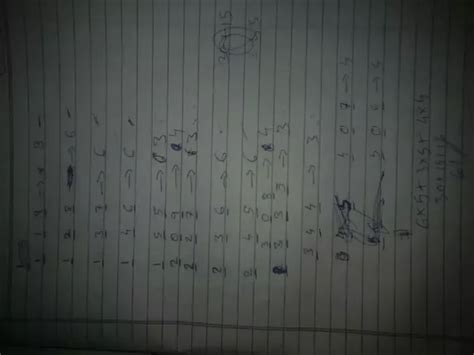 1 1 9 → 3
1 2 8 → 6
1 3 7 → 6
1 4 6 → 6
1 5 5 → 3
2 0 9 → 4
2 2 7 → 3
2 3 6 → 6
2 4 5 → 6
3 0 8 → 4
3 3 5 → 3
3 4 4 → 3
4 0 7 → 4
5 0 6 → 4
6×5+3×5+4×4
30+15+16
61